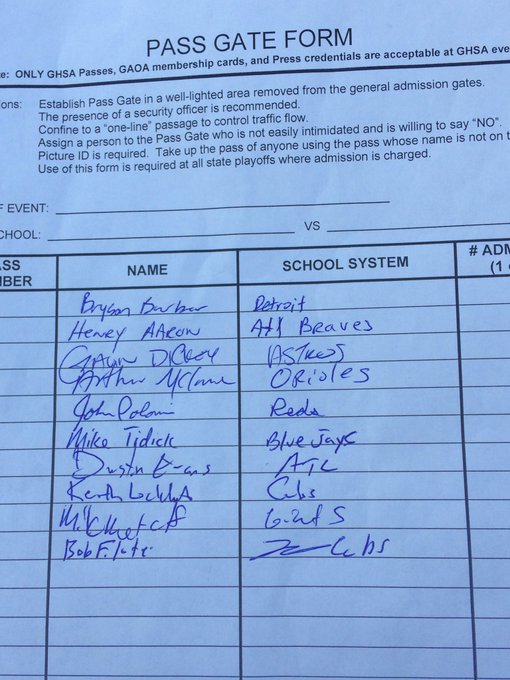 PASS GATE FORM
te: ONLY GHSA Passes, GAOA membership cards, and Press credentials are acceptable at GHSA eve
ons: Establish Pass Gate in a well-lighted area removed from the general admission gates.
The presence of a security officer is recommended.
Confine to a "one-line" passage to control traffic flow.
Assign a person to the Pass Gate who is not easily intimidated and is willing to say "NO".
Picture ID is required. Take up the pass of anyone using the pass whose name is not on t
Use of this form is required at all state playoffs where admission is charged.
F EVENT:
CHOOL: VS
ASS MBER NAME SCHOOL SYSTEM # ADM (1
Detroit
Henry AARON Atl Braves
ASTROS
Arthur ORioles
John Reds
Mike Tidick Blue Jays
Dustin Evans ATL
Cubs
Bob Cubs